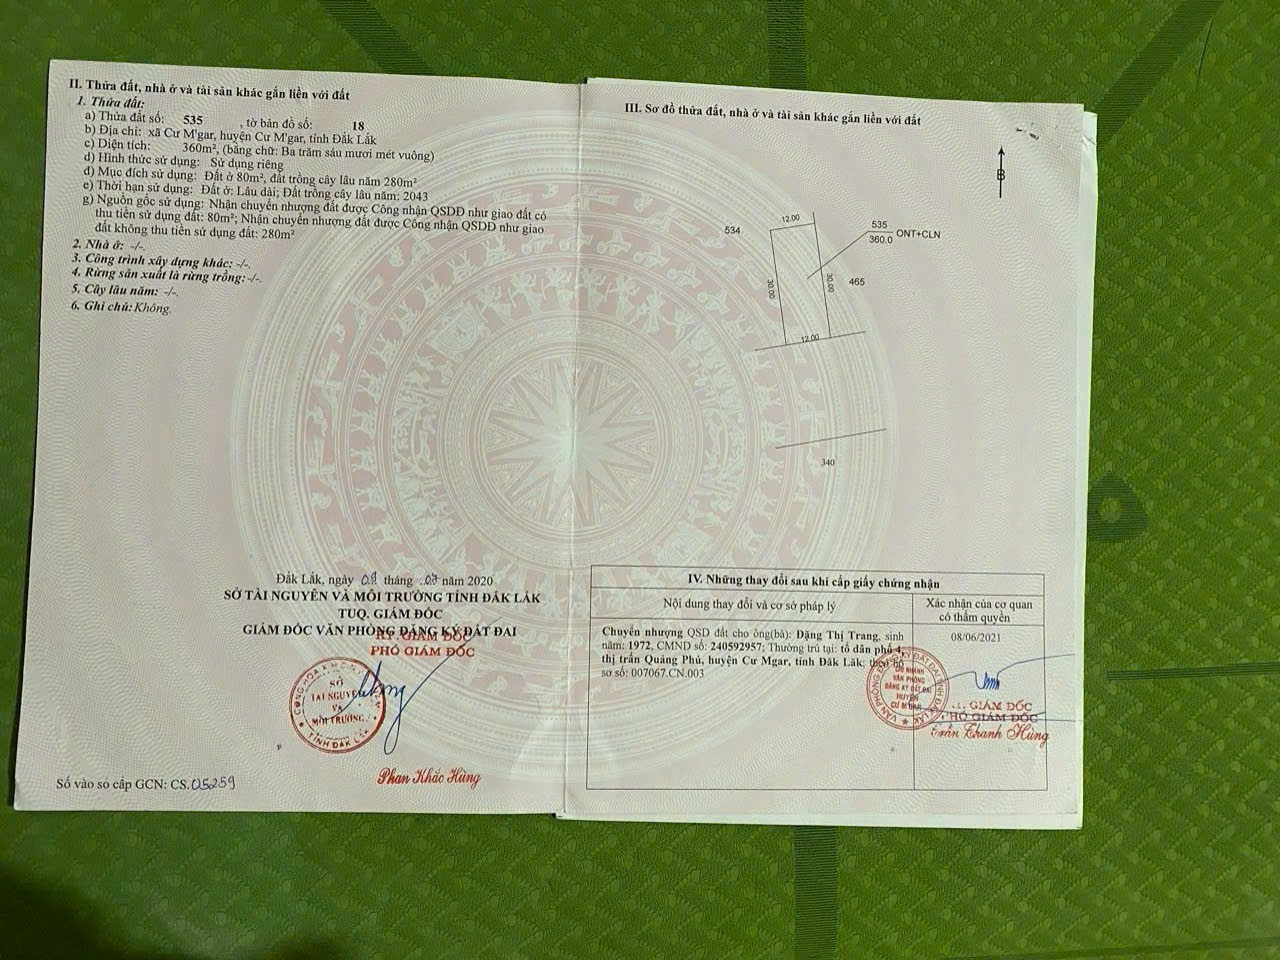 II. Thửa đất, nhà ở và tài sản khác gắn liền với đất
1. Thửa đất:
a) Thửa đất số: 535 , tờ bản đồ số: 18
b) Địa chỉ: xã Cư M'gar, huyện Cư M'gar, tỉnh Đắk Lắk
c) Diện tích: 360m², (bằng chữ: Ba trăm sáu mươi mét vuông)
d) Hình thức sử dụng: Sử dụng riêng
đ) Mục đích sử dụng: Đất ở 80m², đất trồng cây lâu năm 280m²
e) Thời hạn sử dụng: Đất ở: Lâu dài; Đất trồng cây lâu năm: 2043
g) Nguồn gốc sử dụng: Nhận chuyển nhượng đất được Công nhận QSDĐ như giao đất có
thu tiền sử dụng đất: 80m²; Nhận chuyển nhượng đất được Công nhận QSDĐ như giao
đất không thu tiền sử dụng đất: 280m²
2. Nhà ở: -/-.
3. Công trình xây dựng khác: -/-.
4. Rừng sản xuất là rừng trồng: -/-.
5. Cây lâu năm: -/-.
6. Ghi chú: Không.
Đắk Lắk, ngày tháng năm 2020
SỞ TÀI NGUYÊN VÀ MÔI TRƯỜNG TỈNH ĐẮK LẮK
TUQ. GIÁM ĐỐC
GIÁM ĐỐC VĂN PHÒNG ĐĂNG KÝ ĐẤT ĐAI
KT. GIÁM ĐỐC
PHÓ GIÁM ĐỐC
SỞ
TÀI NGUYÊN
VÀ
MÔI TRƯỜNG
TỈNH ĐẮK LẮK
Phan Khắc Hùng
Số vào sổ cấp GCN: CS.05259
III. Sơ đồ thửa đất, nhà ở và tài sản khác gắn liền với đất
B
12.00
534
535
360.0
ONT+CLN
30.00
30.00
465
12.00
340
IV. Những thay đổi sau khi cấp giấy chứng nhận
Nội dung thay đổi và cơ sở pháp lý
Xác nhận của cơ quan
có thẩm quyền
Chuyển nhượng QSD đất cho ông(bà): Đặng Thị Trang, sinh
năm: 1972, CMND số: 240592957; Thường trú tại: tổ dân phố 4,
thị trấn Quảng Phú, huyện Cư Mgar, tỉnh Đăk Lăk; theo hồ
sơ số: 007067.CN.003
08/06/2021
CHI NHÁNH
VĂN PHÒNG
ĐĂNG KÝ ĐẤT ĐAI
HUYỆN
CƯ M'GAR
GIÁM ĐỐC
PHÓ GIÁM ĐỐC
Trần Thanh Hùng